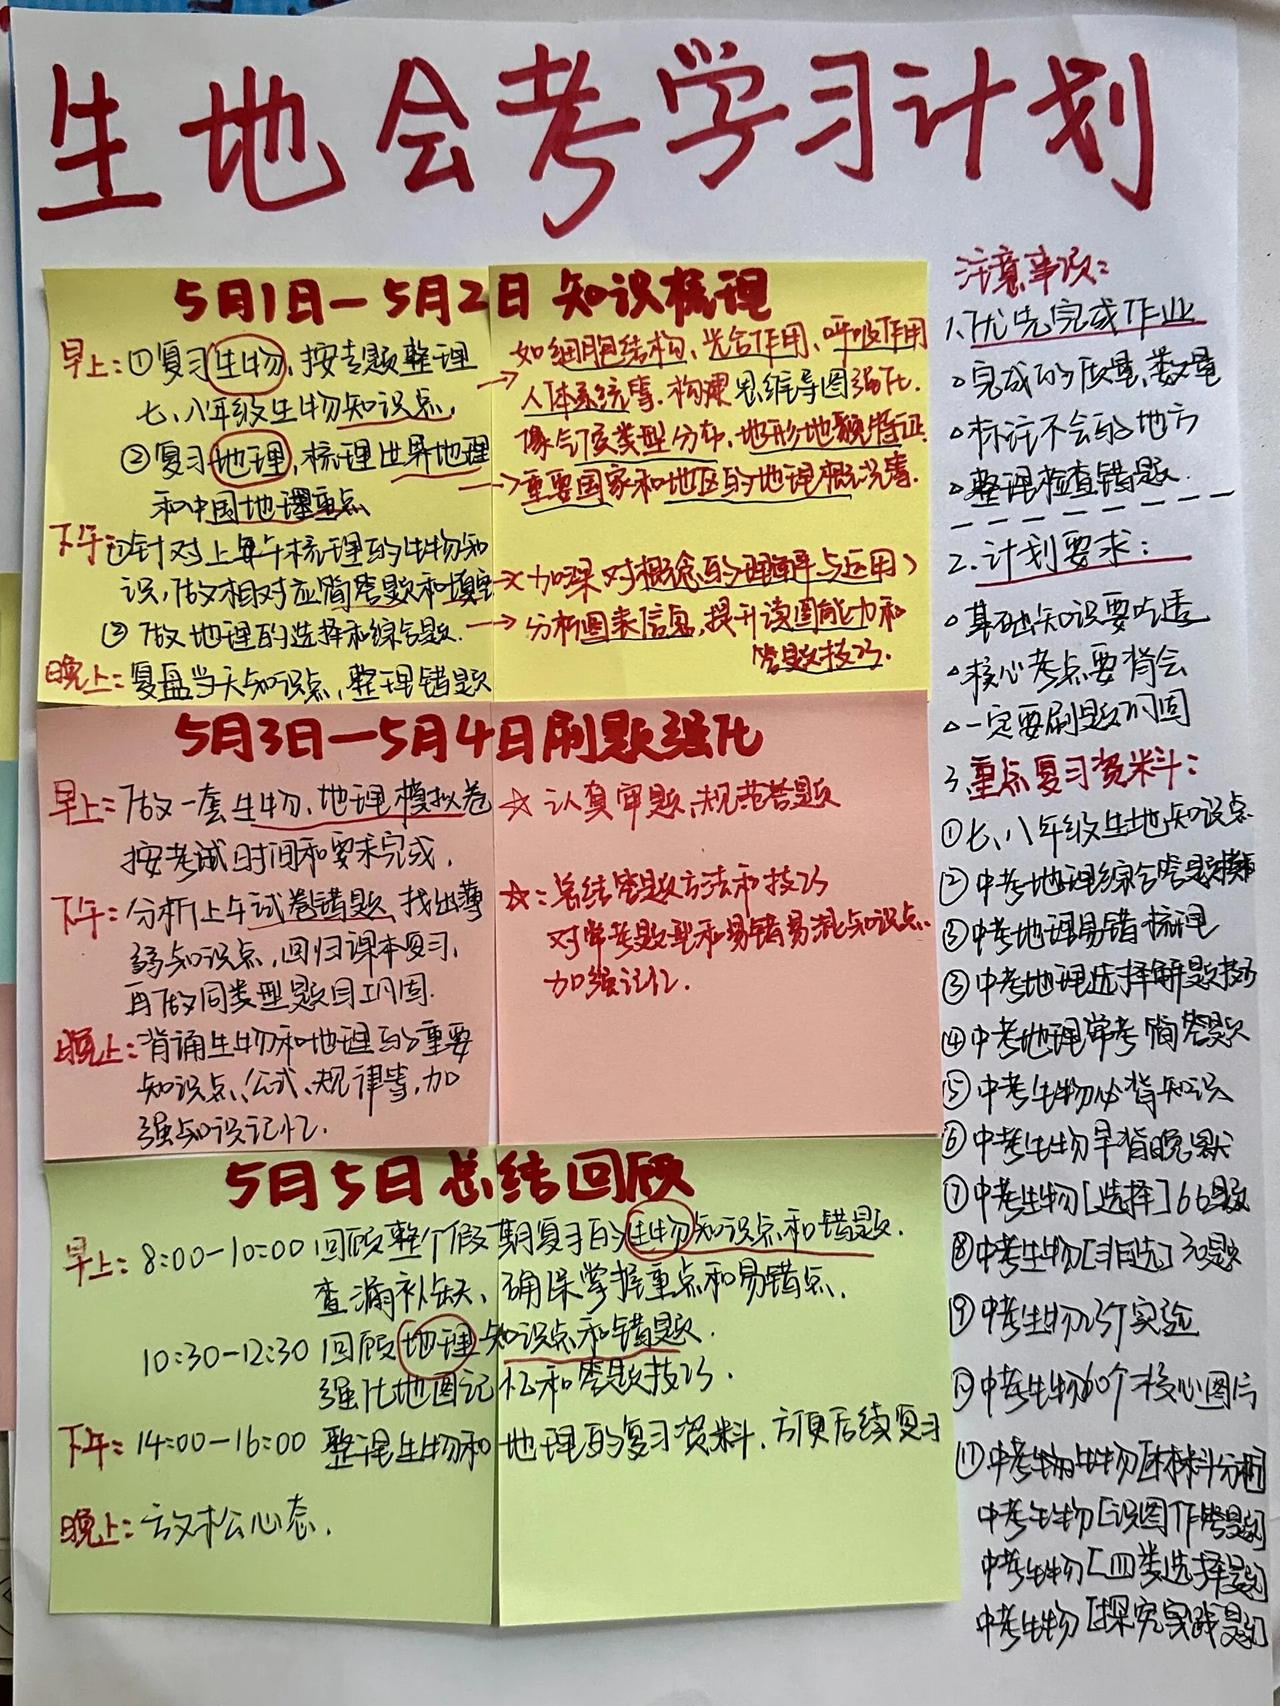 生地会考学习计划
5月1日—5月2日 知识梳理
早上：①复习生物，按专题整理
七、八年级生物知识点，
②复习地理，梳理世界地理
和中国地理重点
下午①针对上午梳理的生物知
识，做相对应简答题和填空
②做地理的选择和综合题.
晚上：复盘当天知识点，整理错题
→如细胞结构、光合作用、呼吸作用
人体系统等.构建思维导图强化.
像气候类型分布、地形地貌特征
→重要国家和地区的地理概况等.
加深对概念的理解与运用
→分析图表信息，提升读图能力和
答题技巧.
5月3日—5月4日刷题强化
早上：做一套生物、地理模拟卷
按考试时间和要求完成，
下午：分析上午试卷错题、找出薄
弱知识点，回归课本复习，
再做同类型题目巩固.
晚上：背诵生物和地理的重要
知识点、公式、规律等，加
强知识记忆.
☆ 认真审题、规范答题
☆：总结答题方法和技巧
对常考题型和易错易混知识点
加强记忆.
5月5日 总结回顾
早上：8:00—10:00 回顾整个假期复习的生物知识点和错题.
查漏补缺、确保掌握重点和易错点.
10:30—12:30 回顾地理知识点和错题.
强化地图记忆和答题技巧.
下午：14:00—16:00 整理生物和地理的复习资料、方便后续复习
晚上：放松心态.
注意事项：
1.优先完成作业
。完成的质量、数量
。标注不会的地方
。整理检查错题
2.计划要求：
。基础知识要吃透
。核心考点要背会
。一定要刷题巩固
3.重点复习资料：
①七、八年级生地知识点
②中考地理综合答题模板
③中考地理易错梳理
③中考地理选择解题技巧
④中考地理常考简答题
⑤中考生物必背知识
⑥中考生物早背晚默
⑦中考生物[选择]66题
⑧中考生物[非选]30题
⑨中考生物25个实验
中考生物40个核心图片
⑪中考生物[材料分析]
中考生物[识图作答题]
中考生物[四类选择题]
中考生物[探究实践题]